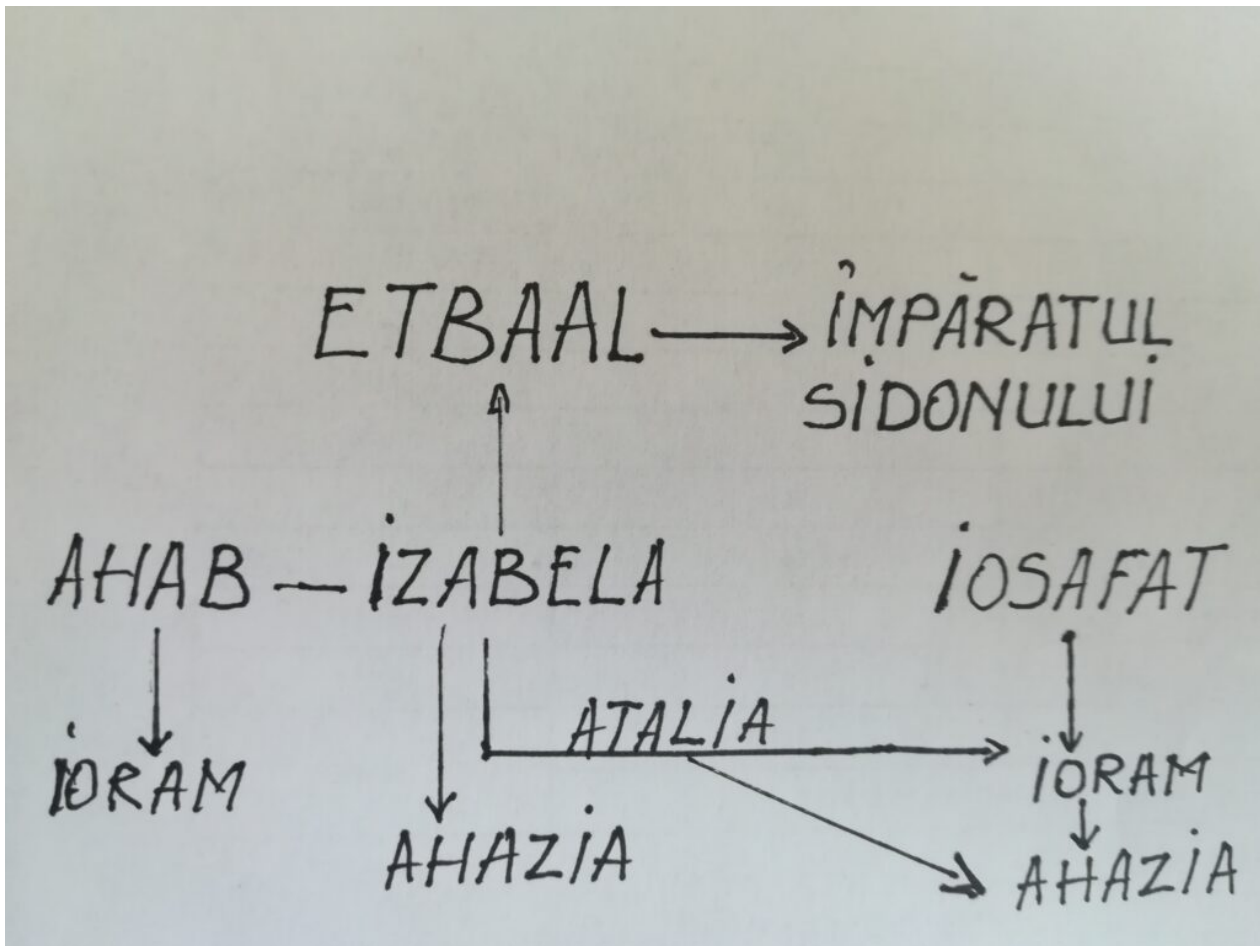 ETBAAL
ÎMPĂRATUL
SIDONULUI
AHAB — IZABELA
IOSAFAT
ATALIA
IORAM
IORAM
AHAZIA
AHAZIA